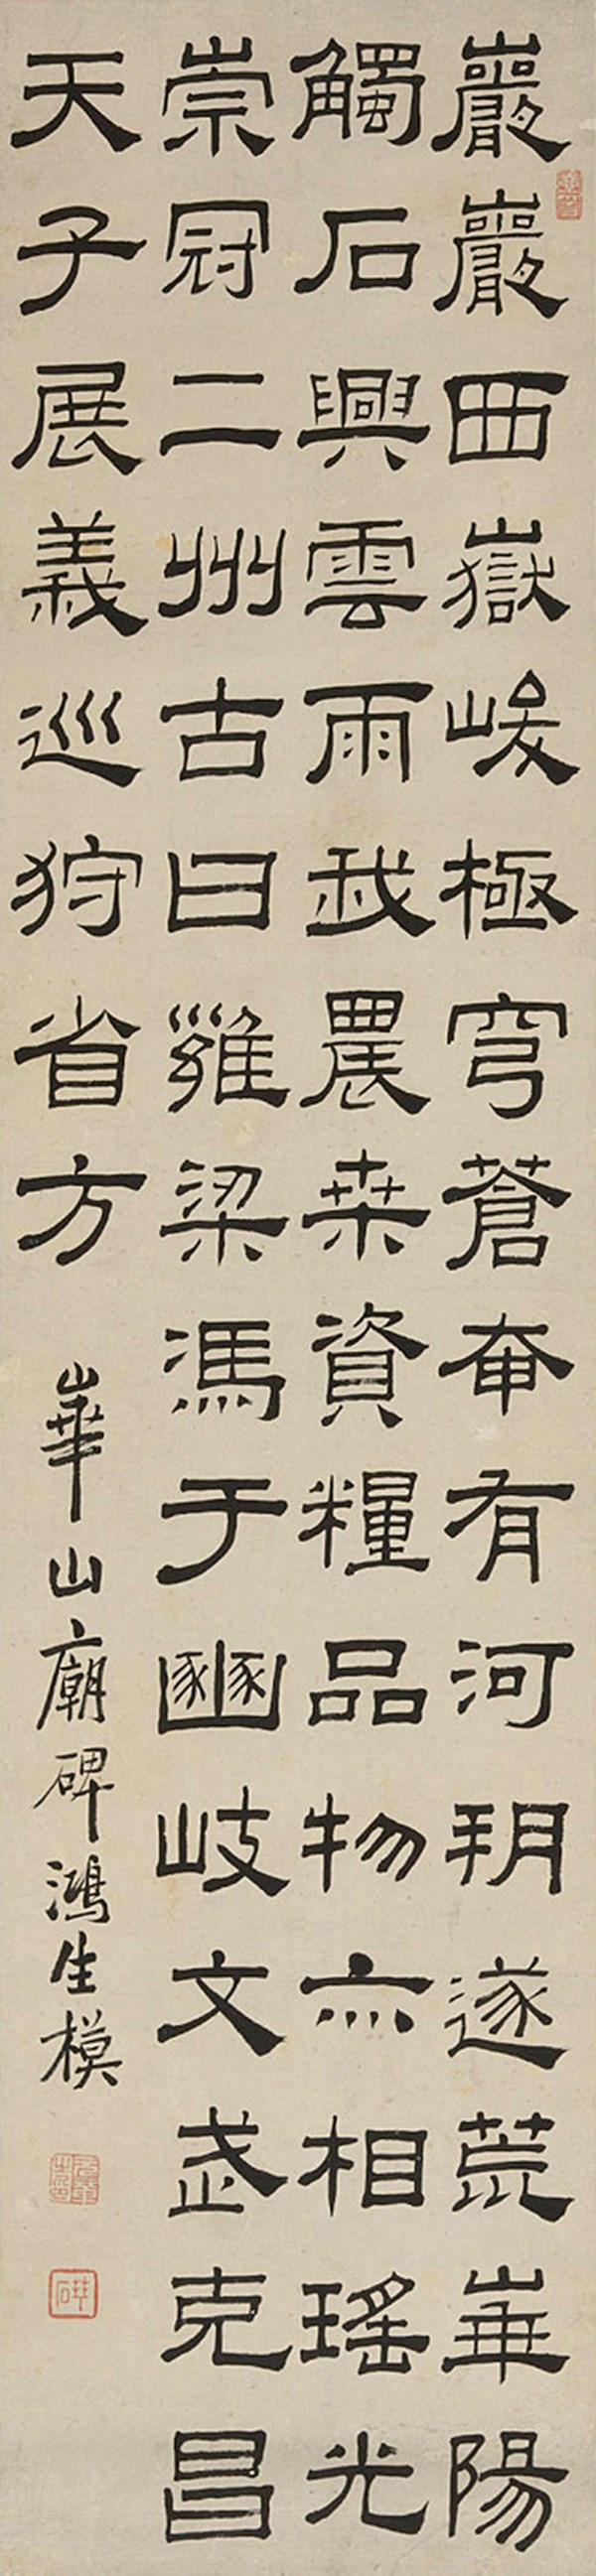 巖巖西嶽峻極穹蒼奄有河朔遂荒崋陽
觸石興雲雨我農桒資糧品物亦相瑤光
崇冠二州古曰雝梁馮于豳岐文武克昌
天子展義巡狩省方
崋山廟碑鴻生模